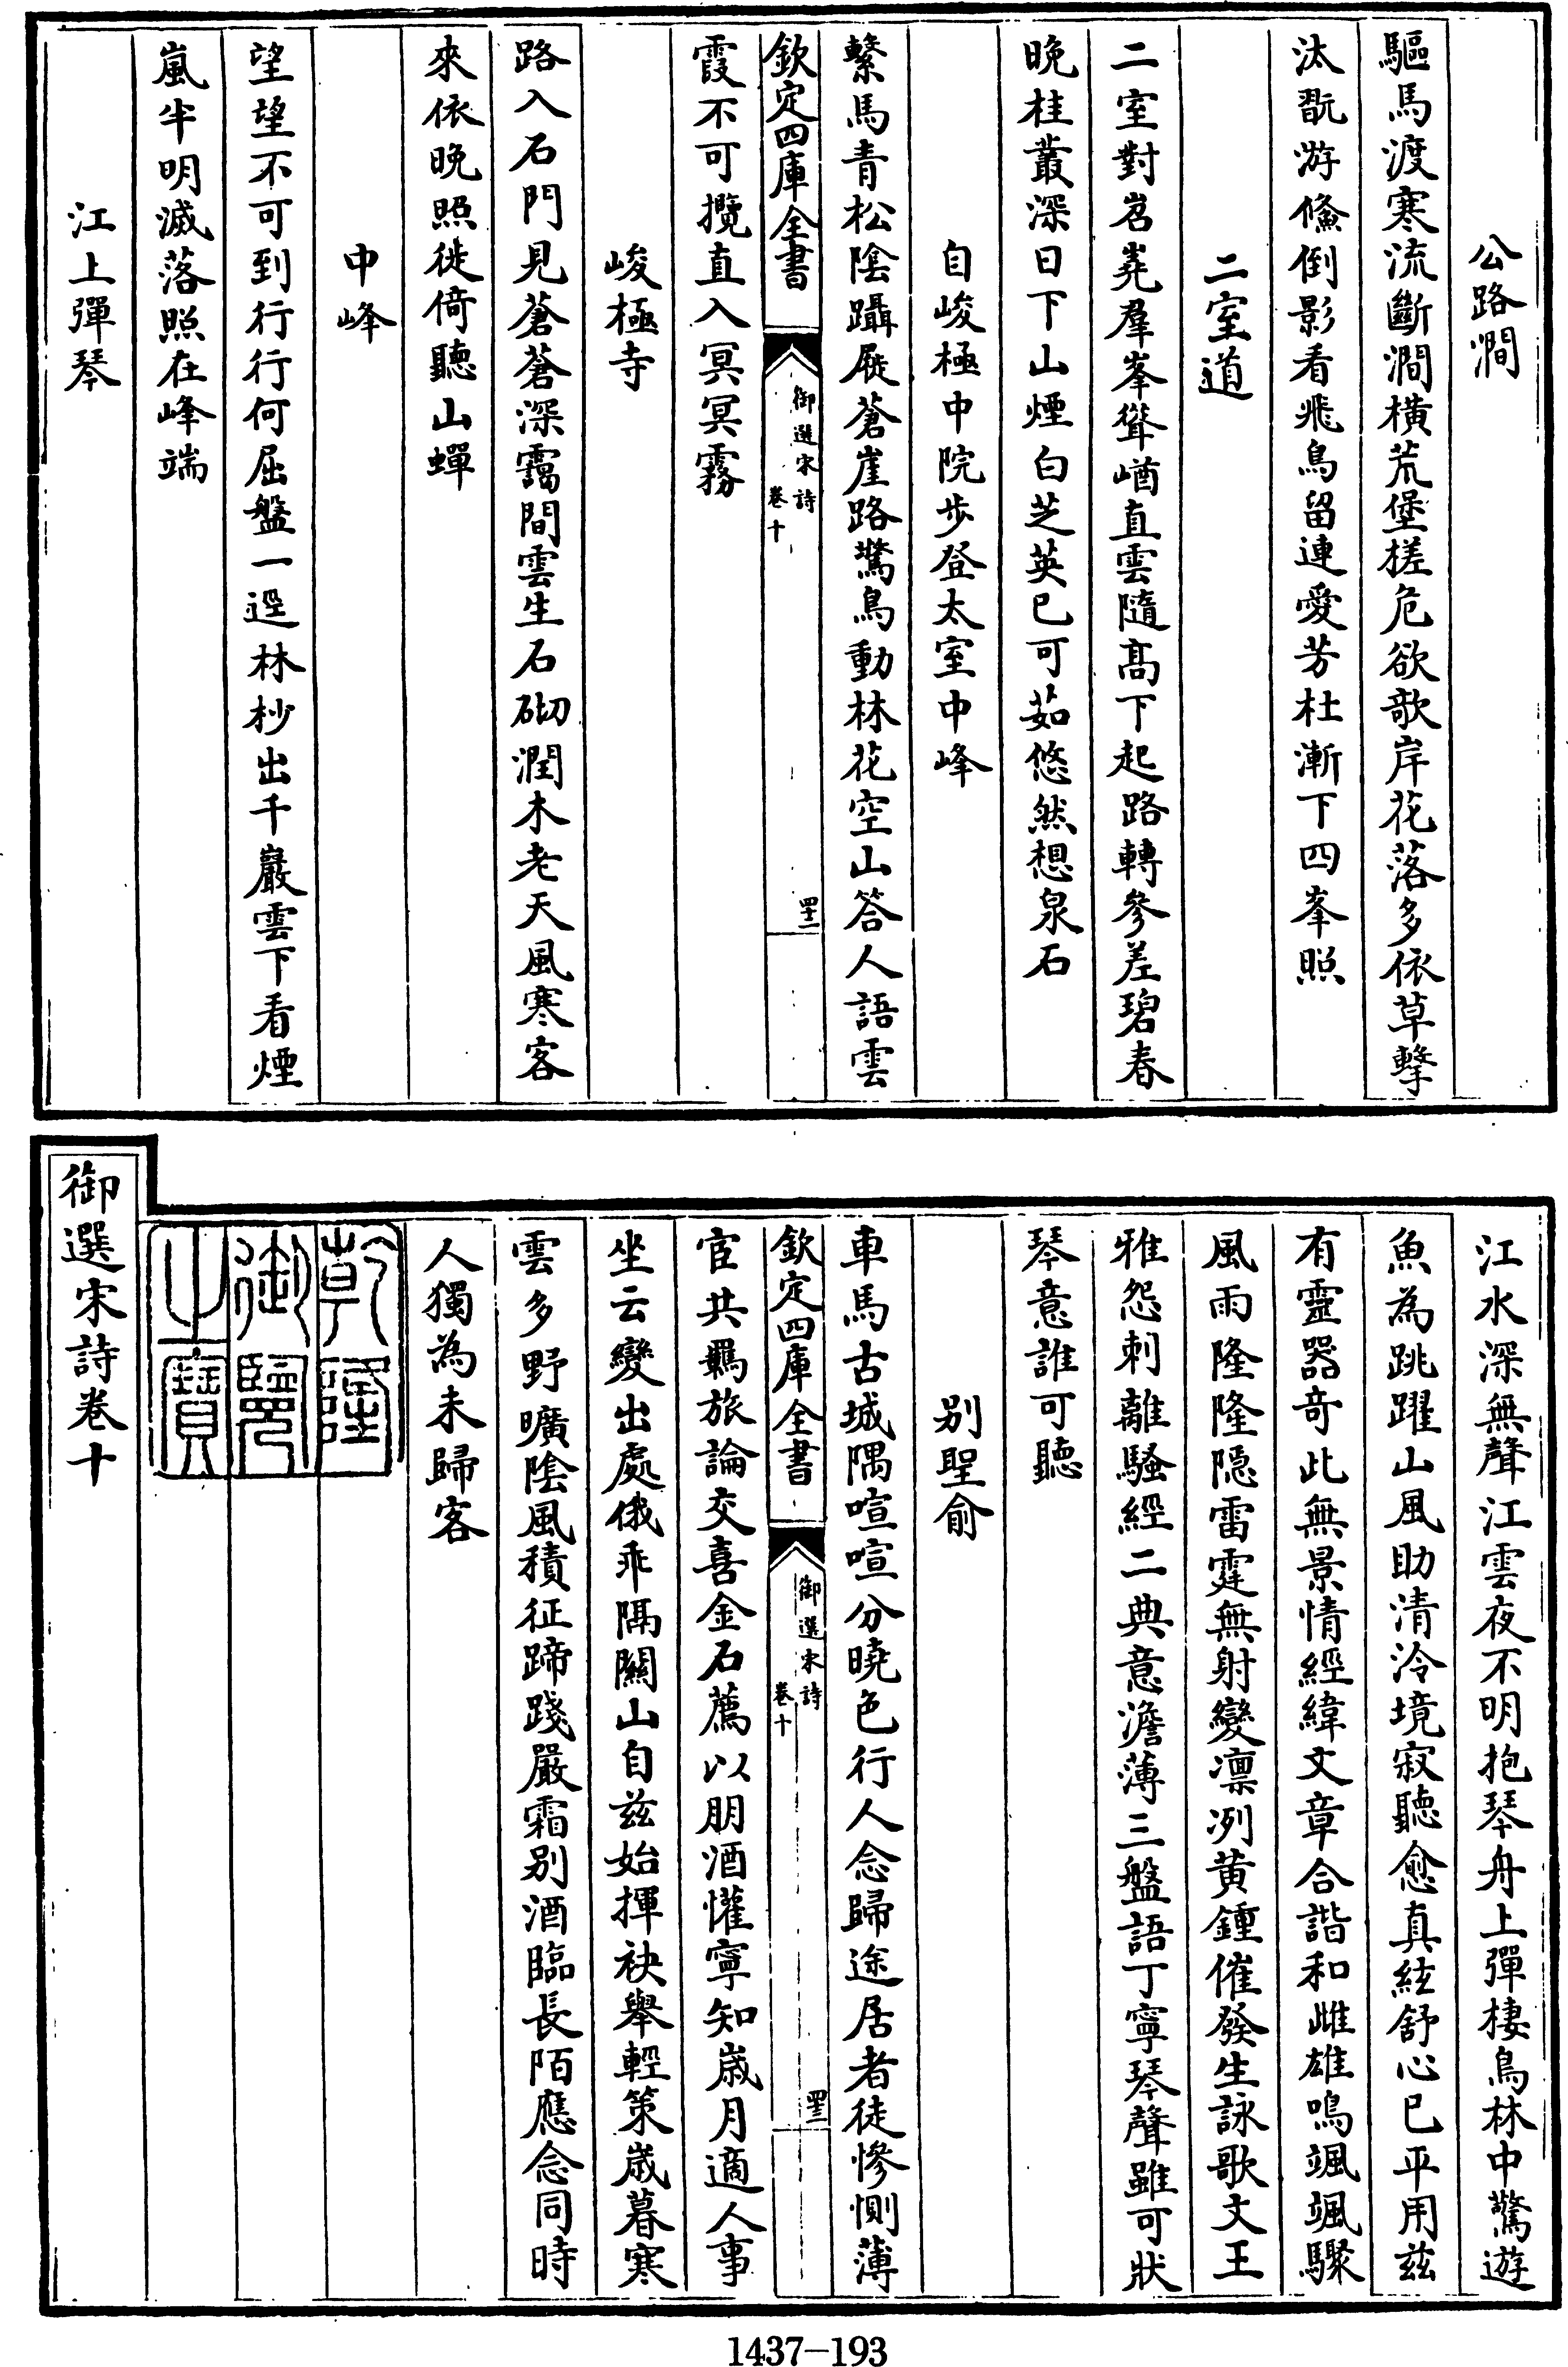 公路澗
驅馬渡寒流斷澗橫荒堡槎危欲欹岸花落多依草擊
汰翫游儵倒影看飛鳥留連愛芳杜漸下四峯照
二室道
二室對岧嶤羣峯聳崷直雲隨髙下起路轉參差碧春
晚桂叢深日下山煙白芝英已可茹悠然想泉石
自峻極中院步登太室中峰
繫馬青松陰躡屐蒼崖路驚鳥動林花空山答人語雲
欽定四庫全書
御選宋詩
卷十
四十二
霞不可攬直入冥冥霧
峻極寺
路入石門見蒼蒼深靄間雲生石砌潤木老天風寒客
來依晚照徙倚聽山蟬
中峰
望望不可到行行何屈盤一逕林杪出千巖雲下看煙
嵐半明滅落照在峰端
江上彈琴
江水深無聲江雲夜不明抱琴舟上彈棲鳥林中驚遊
魚為跳躍山風助清泠境寂聽愈真絃舒心已平用兹
有靈器奇此無景情經緯文章合諧和雌雄鳴颯颯驟
風雨隆隆隠雷霆無射變凛冽黄鍾催發生詠歌文王
雅怨刺離騷經二典意澹薄三盤語丁寧琴聲雖可狀
琴意誰可聽
别聖俞
車馬古城隅喧喧分曉色行人念歸途居者徒慘惻薄
欽定四庫全書
御選宋詩
卷十
四十三
宦共羈旅論交喜金石薦以朋酒懽寧知歳月適人事
坐云變出處俄乖隔關山自兹始揮袂舉輕策歳暮寒
雲多野曠陰風積征蹄踐嚴霜别酒臨長陌應念同時
人獨為未歸客
乾隆
御覽
之寶
御選宋詩卷十
1437-193